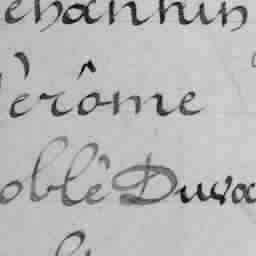 ehannin
Jérôme
oblé Duva